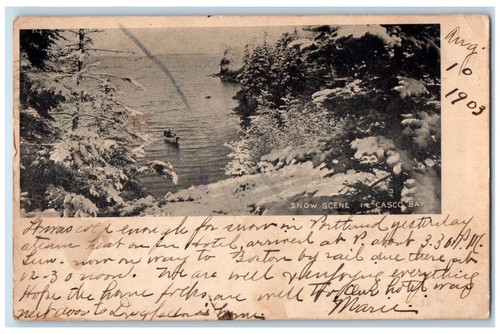 Aug.
10
1903
SNOW SCENE IN CASCO BAY
It was cold enough for snow in Portland yesterday
Hotel, arrived at P. about 3.30 P.M.
Sun. now on way to Boston by rail due there at
12-30 noon. We are well & enjoying everything
Hope the home folks are well Our hotel was
next door to home. Marie